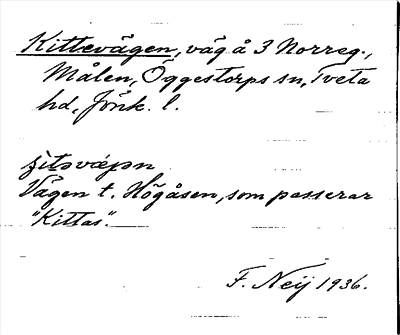 Kittevägen, väg å 3 Norreg.,
Målen, Öggestorps sn, Tveta
hd, Jönk. l.
Vägen t. Högåsen, som passerar
"Kittas".
F. Neij 1936.